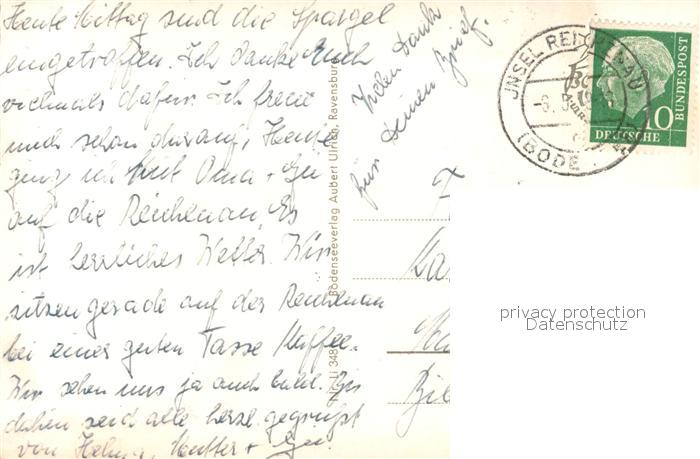 Heute Mittag sind die Spargel
eingetroffen. Ich danke Euch
vielmals dafür. Ich freue
mich schon darauf. Heute
ging ich mit Oma +
auf die Reichenau. Es
ist herrliches Wetter. Wir
sitzen gerade auf der Reichenau
bei einer guten Tasse Kaffee.
Wir sehen uns ja auch bald. Bis
dahin seid alle herzl. gegrüßt
von Mutter +
Vielen Dank
für Deinen Brief.
Bodenseeverlag Aubert Ulrich, Ravensburg
INSEL REICHENAU
(BODE
10
DEUTSCHE
BUNDESPOST
privacy protection
Datenschutz